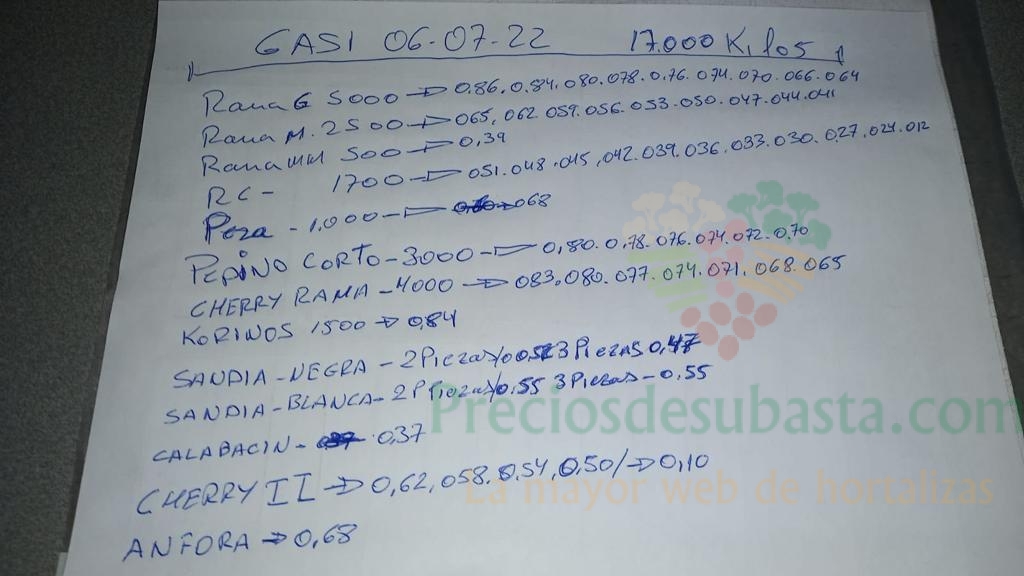 GASI 06-07-22 17.000 Kilos
Rama G 5000 → 0.86.0.84.080.078.0.76.074.070.066.064
Rama M. 2500 → 065,062.059.056.053.050.047.044.041
Rama MM 500 → 0,39
RC - 1700 → 051.048.045,042.039.036.033.030.027.024.012
Pera - 1.000 → 068
PEPINO CORTO - 3000 → 0,80.0,78.076.074.072.0,70
CHERRY RAMA - 4000 → 083.080.077.074.071.068.065
KORINOS 1500 → 0,84
SANDIA - NEGRA - 2 Piezas/ 3 Piezas 0,47
SANDIA - BLANCA - 2 Piezas/0.55 3 Piezas - 0.55
CALABACIN - 0,37
CHERRY II → 0,62,058.0.54,0,50/→ 0,10
ANFORA → 0,68
Preciosdesubasta.com
La mayor web de hortalizas